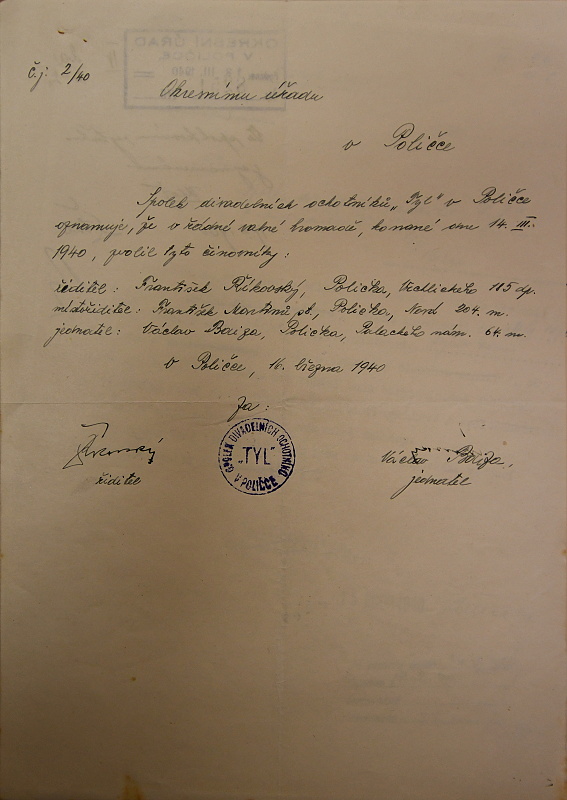 Č.j. 2/40
Okresnímu úřadu
v Poličce
Spolek divadelních ochotníků „Tyl" v Poličce
oznamuje, že v řádné valné hromadě, konané dne 14. III.
1940, zvolil tyto činovníky:
ředitel: František Říkovský, Polička, Vrchlického 185 dp.
místořiditel: František Martinů st., Polička, Nová 204. m.
jednatel: Václav Báiga, Polička, Palackého nám. 64. m.
V Poličce, 16. března 1940
Za:
SPOLEK DIVADELNÍCH OCHOTNÍKŮ
„TYL"
V POLIČCE
Říkovský
ředitel
Václav Báiga,
jednatel